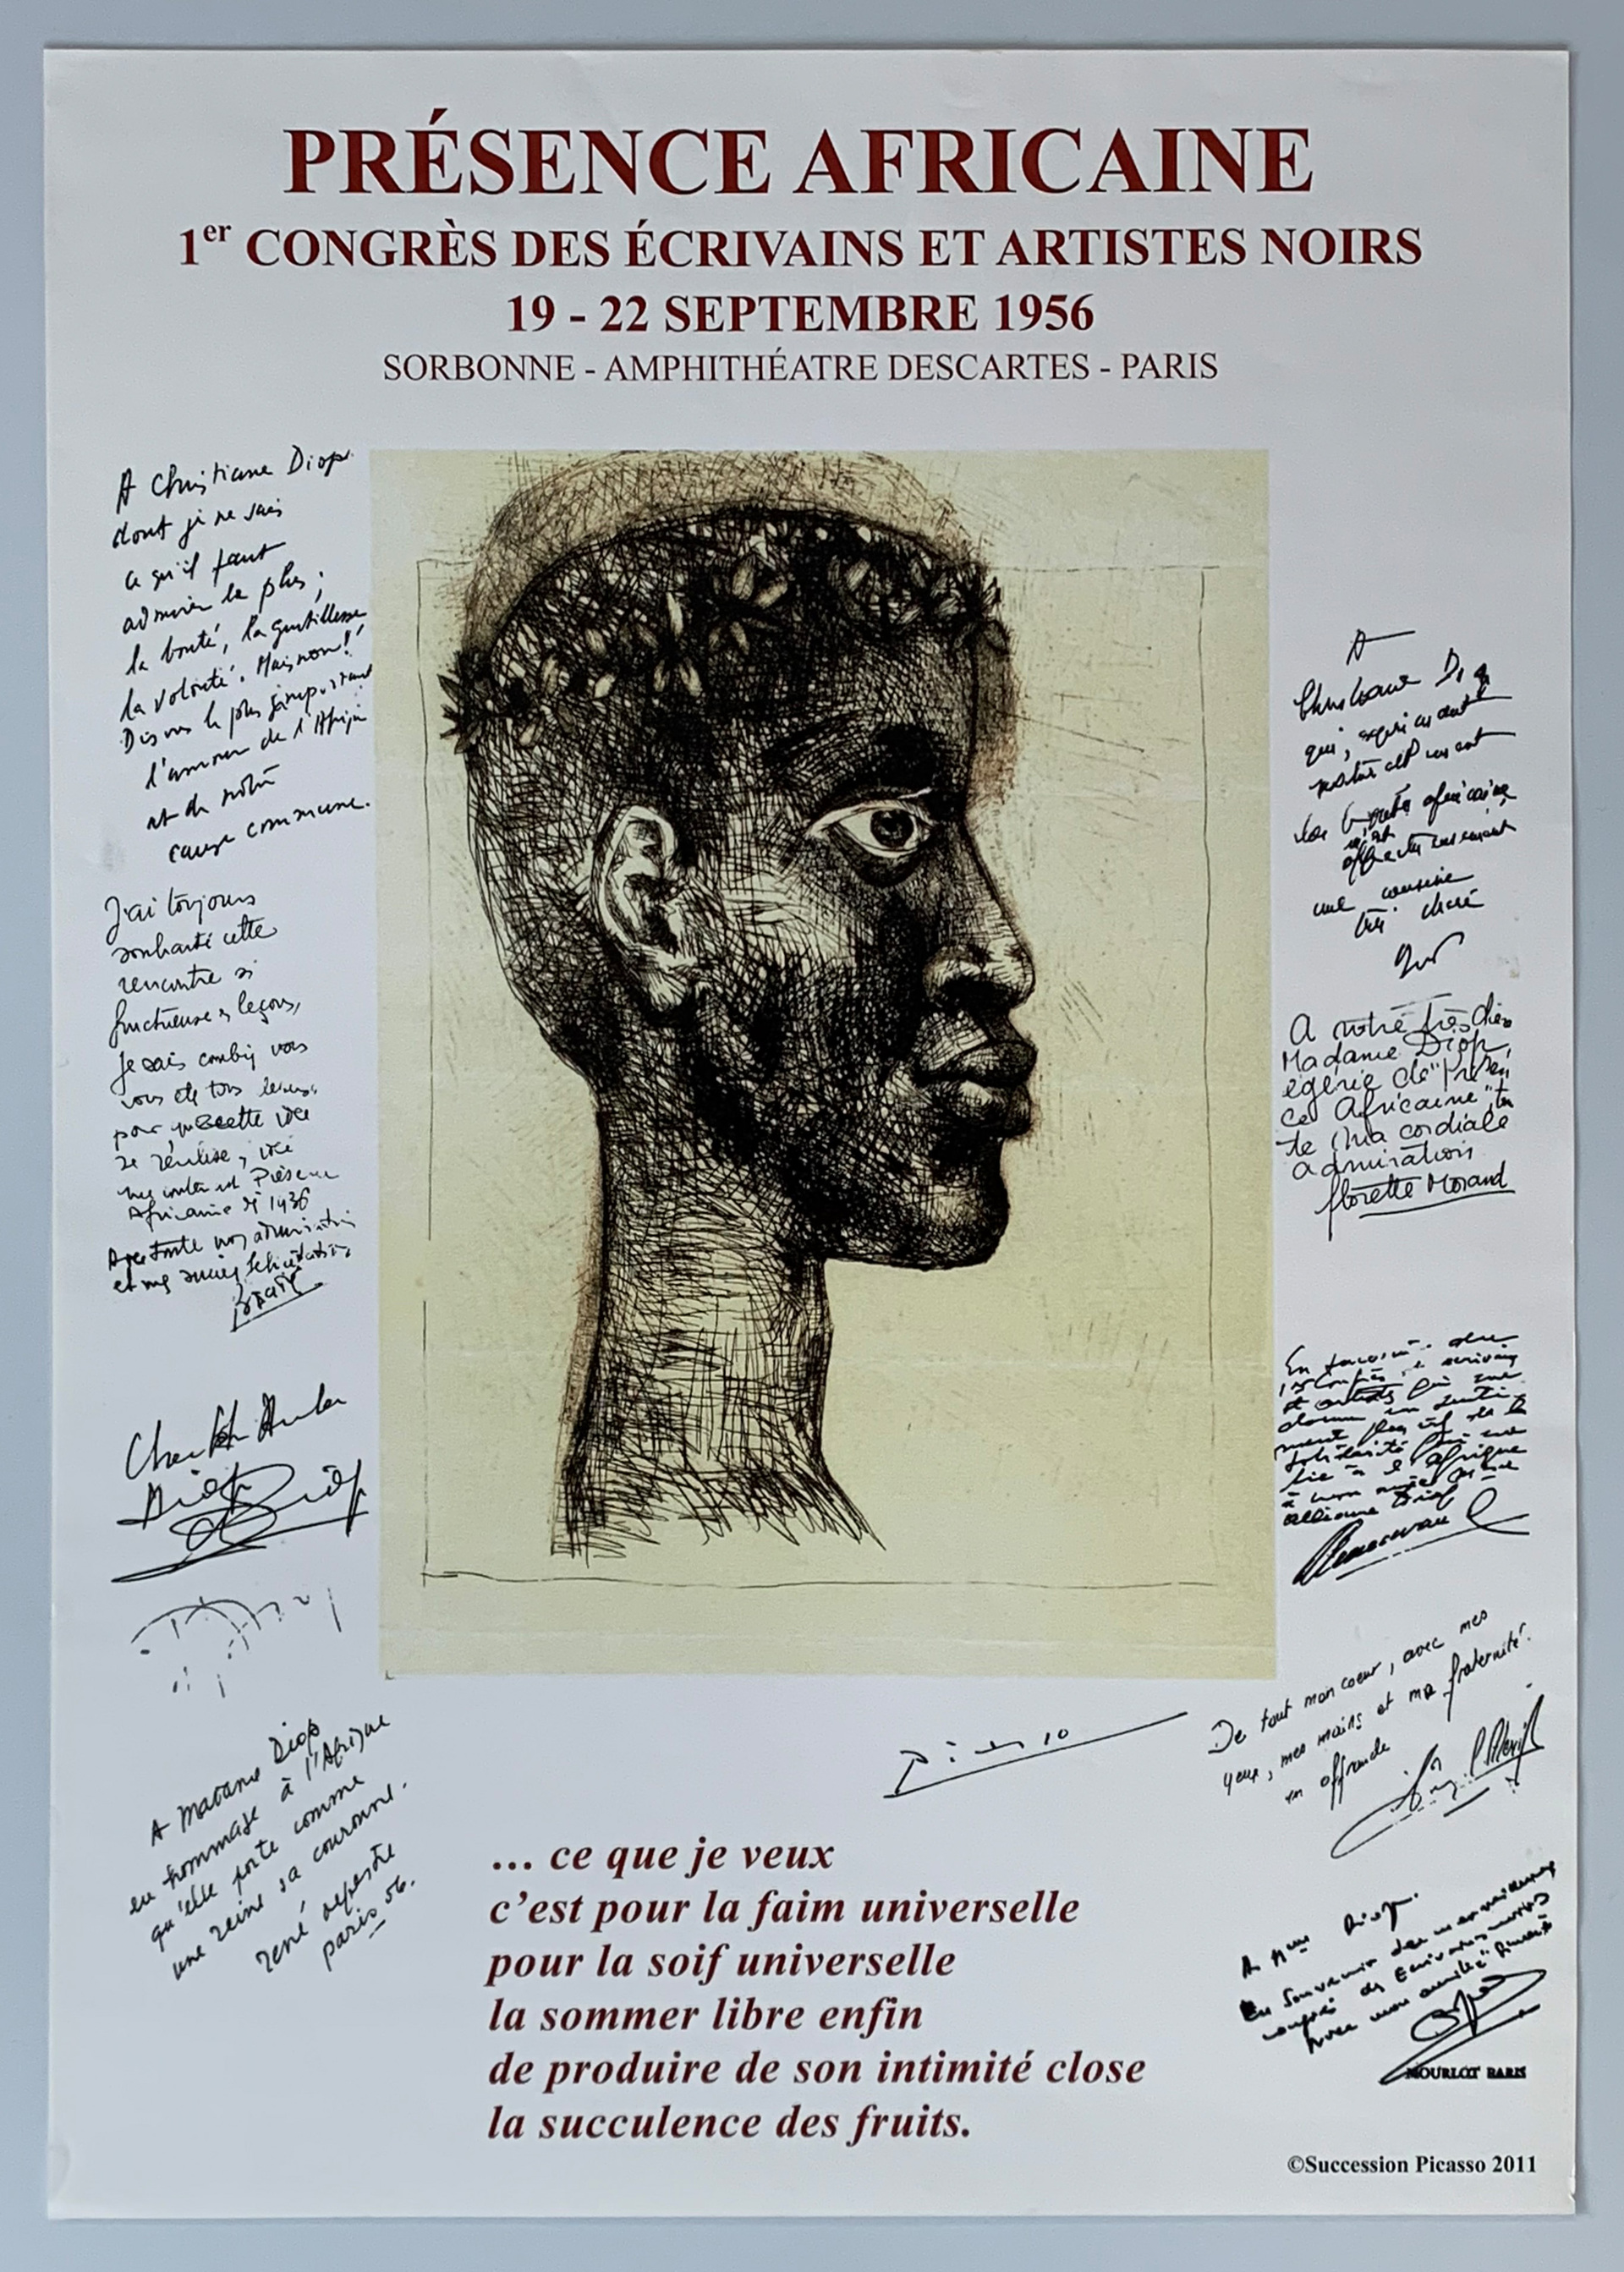 PRÉSENCE AFRICAINE
1er CONGRÈS DES ÉCRIVAINS ET ARTISTES NOIRS
19 - 22 SEPTEMBRE 1956
SORBONNE - AMPHITHÉATRE DESCARTES - PARIS
A Christiane Diop
dont je ne sais
ce qu'il faut
admirer le plus ;
la bonté, la gentillesse
la volonté. Mais non!
Disons le plus important
l'amour de l'Afrique
et de notre
cause commune.
J'ai toujours
souhaité cette
rencontre si
fructueuse
Je sais vous
pour
Présence
Africaine
Cheikh Anta
Diop Diop
A Madame Diop
en hommage à l'Afrique
qu'elle porte comme
une reine sa couronne.
rené depestre
paris 56.
A
Christiane Diop
qui,
la africaine
une cousine
très chère
A notre très chère
Madame Diop,
égérie de "Présen
ce Africaine", tou
te ma cordiale
admiration
florette Morand
En du
1er Congrès
et artistes qui me
donne un senti
ment plus vif de la
solidarité qui me
lie à l'Afrique
à mon
alliance Diop
De tout mon coeur, avec mes
yeux, mes mains et ma fraternité.
en offrande
Picasso
A Mme Diop.
En souvenir du merveilleux
congrès des Ecrivains noirs
Avec mon amitié
MOURLOT PARIS
... ce que je veux
c'est pour la faim universelle
pour la soif universelle
la sommer libre enfin
de produire de son intimité close
la succulence des fruits.
©Succession Picasso 2011